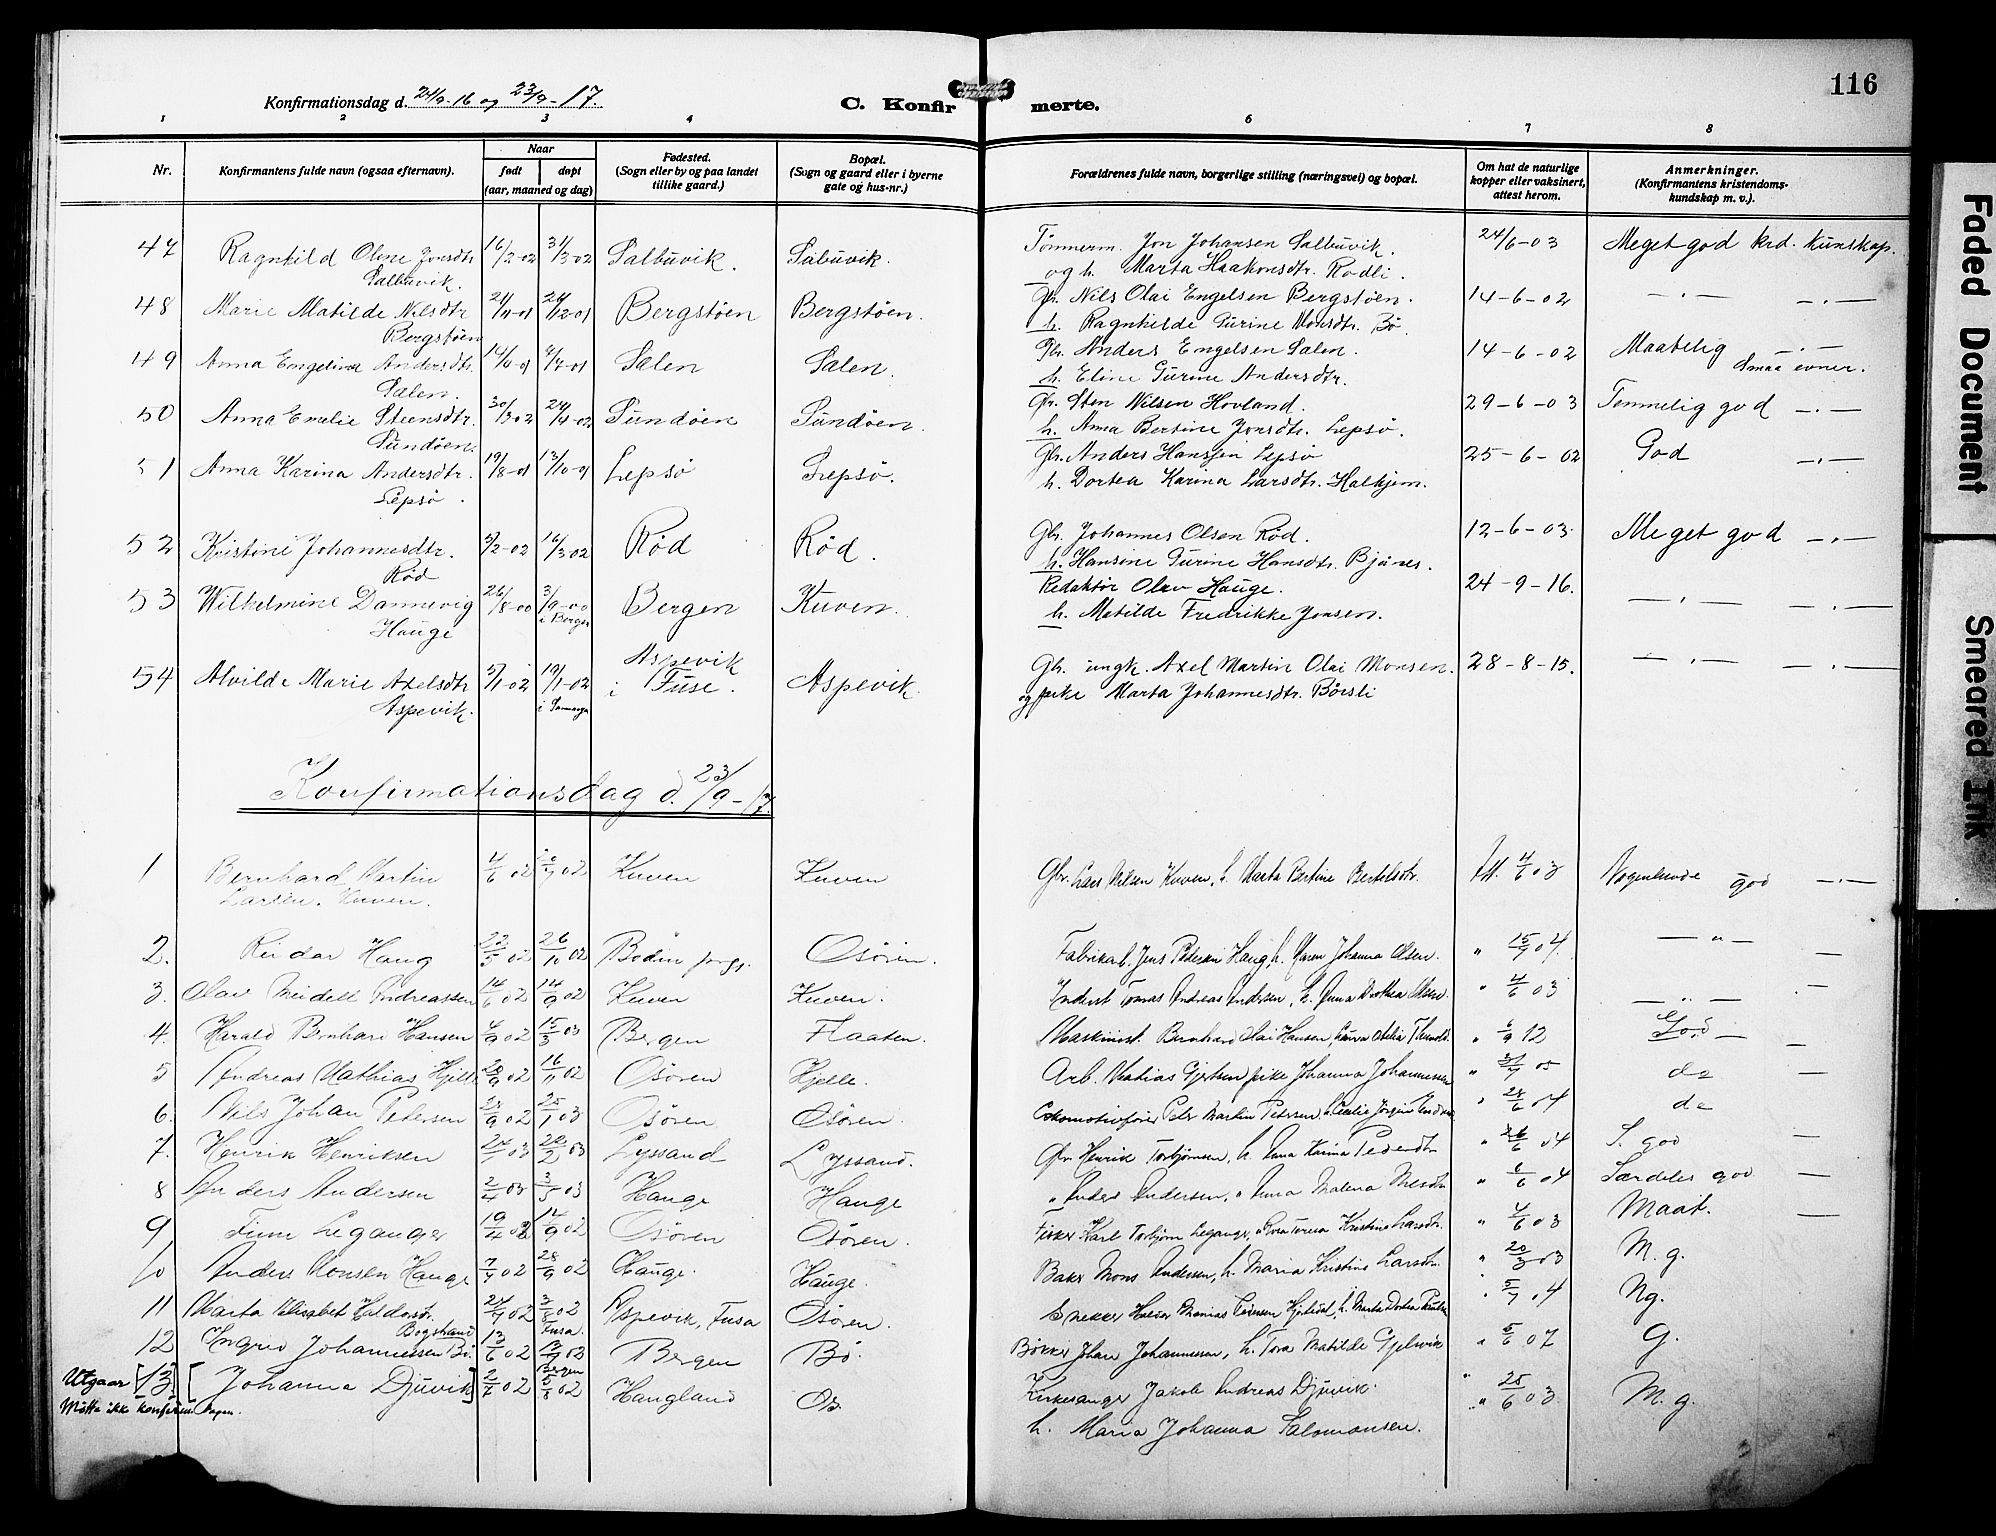 116
Konfirmationsdag d. 24/9-16 og 23/9-17.
C. Konfirmerte.
1 2 3 4 5 6 7 8
Nr.
Konfirmantens fulde navn (ogsaa efternavn).
Naar
født
døpt
(aar, maaned og dag)
Fødested.
(Sogn eller by og paa landet
tillike gaard.)
Bopæl.
(Sogn og gaard eller i byerne
gate og hus-nr.)
Forældrenes fulde navn, borgerlige stilling (næringsvei) og bopæl.
Om hat de naturlige
kopper eller vaksinert,
attest herom.
Anmerkninger.
(Konfirmantens kristendoms-
kundskap m. v.).
47 Ragnhild Oline Jonsdtr. 16/2-02 31/3-02 Salbuvik. Salbuvik. Tømmerm. Jon Johansen Salbuvik. 24/6-03 Meget god krd. kunskap.
Salbuvik. og h. Marta Haakonsdtr. Rødli.
48 Marie Matilde Nilsdtr 21/11-01 26/12-01 Bergstøen Bergstøen. Gbr. Nils Olai Engelsen Bergstøen. 14-6-02 — " — — " —
Bergstøen h. Ragnhilde Turine Monsdtr. Bø.
49 Anna Engelina Andersdtr. 14/6-01 7/7-01 Salen Salen. Gbr. Anders Engelsen Salen. 14-6-02 Maatelig — " —
Salen. h. Eline Turine Andersdtr. Smaa evner.
50 Anna Emelie Steensdtr. 30/3-02 24/4-02 Sundøen Sundøen. Gbr. Sten Nilsen Hovland. 29-6-03 Temmelig god — " —
Sundøen. h. Anna Bertine Jonsdtr. Lepsø.
51 Anna Karina Andersdtr. 19/8-01 13/10-01 Lepsø Lepsø. Gbr. Anders Hansen Lepsø 25-6-02 God — " —
Lepsø. h. Dortea Karina Larsdtr. Halhjem.
52 Kristine Johannesdtr. 3/2-02 16/3-02 Rød Rød. Gbr. Johannes Olsen Rød. 12-6-03 Meget god — " —
Rød h. Hansine Turine Hansdtr. Bjånes.
53 Wilhelmine Dannevig 26/8-00 3/9-00 Bergen Kuven. Redaktør Olav Hauge. 24-9-16. — " — — " —
Hauge i Bergen h. Matilde Fredrikke Jonsen.
54 Alvilde Marie Axelsdtr 5/1-02 19/1-02 Aspevik i Fuse. Aspevik. Gbr. ungk. Axel Martin Olai Monsen. 28-8-15. — " — — " —
Aspevik. i Samnanger og pike Marta Johannesdtr. Børsli
Konfirmationsdag d. 23/9-17.
1 Bernhard Martin 4/6 02 7 02 Kuven Kuven Gbr. Lars Nilsen Kuven, h. Marta Bertine Bertelsdtr. Att. 4/6 03 Nogenlunde god — " —
Larsen. Kuven.
2. Reidar Haug 22/5 02 26/10 02 Bodin prgj. Osøren. Fabrikarb. Jens Pedersen Haug, h. Maren Johanna Olsen. " 15/9 04. — " — —
3. Olav Meidell Andreassen 14/6 02 14/9 02 Kuven Kuven. Tomas Andreas Andersen, h. Anna Dorthea Olsen. " 4/6 03 — " — —
4. Harald Bernhard Hansen 4/9 02 15/3 03 Bergen Flaaten. Maskinist. Bernhard Olai Hansen, " 6/9 12 God — —
5 Andreas Mathias Hjelle 28/9 02 16/11 02 Osøren Hjelle. Arb. Matias Gjertsen, pike Johanna Johannessen " 05 do —
6. Nils Johan Petersen 28/9 02 25/1 03 Osøren Osøren. Lokomotivfører Peter Martin Petersen, " 28/6 04 do
7. Henrik Henriksen 24/1 03 22/2 03 Lyssand Lyssand. Gbr Henrik Torbjørnsen, h. Anna Karina Pedersdtr " 26/6 04 S. god —
8 Anders Andersen 2/4 03 3/5 03 Hauge Hauge " Anders Andersen, " Anna Malena Nilsdtr " 6/6 04 Særdeles god —
9 Finn Leganger 19/4 02 14/9 02 Osøren Osøren. Fisker Karl Torbjørn Leganger, Kristine Larsdtr. " 4/6 03 Maat. —
10 Anders Monsen Hauge 7/7 02 28/9 02 Hauge. Hauge. Baker Mons Andersen, h. Maria Kristine Larsdtr. " 20/3 03 M. g.
11 Marta Elisabet Haldorsdtr. 24/7 02 3/8 02 Aspevik, Fusa Osøren. Snekker Haldor Monias Pedersen h. Marta Dortea " 5/7 04 Ng.
Bogstrand Fusa.
12 Ingrid Johannessen Bø. 13/6 02 13/7 02 Bergen Bø. Bøkker Johan Johannessen, h. Tora Matilde Gjelsvik " 5/6 07 G.
Bergen
Utgaar [13.] [Johanna Djuvik] 2/7 02 5/8 02 Haugland Os. Kirkesanger Jakob Andreas Djuvik. " 25/6 03 M. g.
Møtte ikke konfirm. dagen. h. Maria Johanna Salomonsen.
Faded Document
Smeared Ink